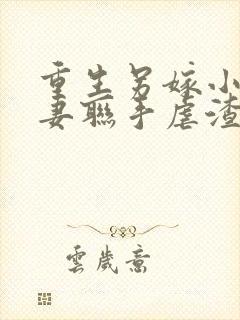 重生另嫁小
妻聯手虐渣
雲歲意